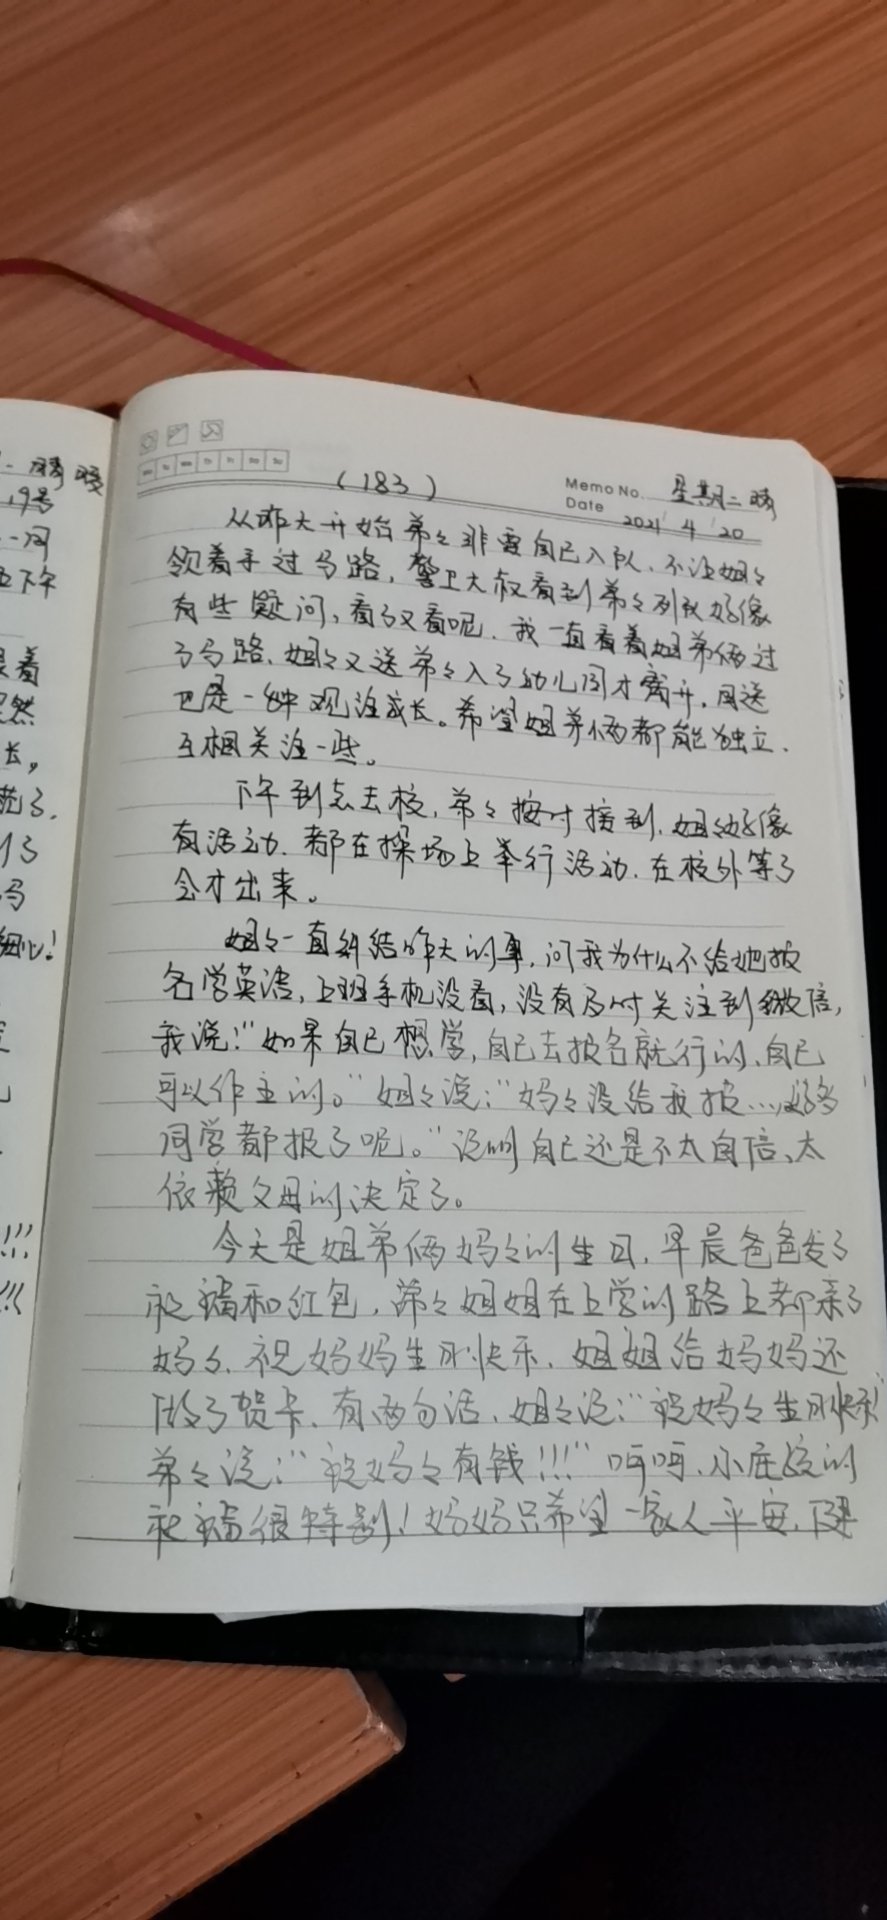 (183)
Memo No. 星期二 晴
Date 2021 4 20
从昨天开始弟々非要自己入队、不让姐々
领着手过马路，警卫大叔看到弟々列队好像
有些疑问，看了又看呢．我一直看着姐弟俩过
了马路、姐々又送弟々入了幼儿园才离开，目送
也是一种观注成长。希望姐弟俩都能独立．
互相关注一些。
下午到点去校，弟々按时接到．姐々好像
有活动．都在操场上举行活动．在校外等了
会才出来。
姐々一直纠结昨天的事，问我为什么不给她报
名学英语，上班手机没看，没有及时关注到微信，
我说：“如果自己想学，自己去报名就行的、自己
可以作主的。”姐々说：“妈々没给我报…，好多
同学都报了呢。”说明自己还是不太自信、太
依赖父母的决定了。
今天是姐弟俩妈々的生日，早晨爸爸发了
祝福和红包，弟々姐姐在上学的路上都亲了
妈々、祝妈妈生日快乐．姐姐给妈妈还
做了贺卡、有两句话、姐々说：“祝妈々生日快乐！”
弟々说：“祝妈々有钱!!!”呵呵、小屁孩的
祝福很特别！妈妈只希望一家人平安、健
19号
下午